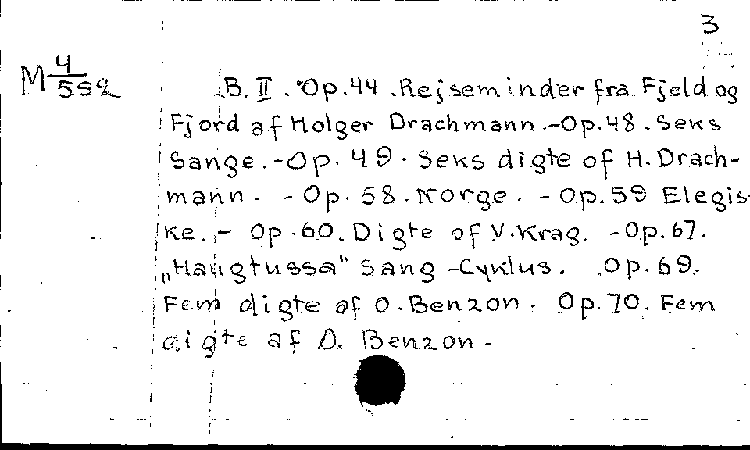 3
M 4/552
B. II. Op. 44. Rejseminder fra Fjeld og
Fjord af Holger Drachmann. - Op. 48. Seks
Sange. - Op. 49. Seks digte of H. Drach-
mann. - Op. 58. Norge. - Op. 59 Elegis-
ke. - Op. 60. Digte of V. Krag. - Op. 67.
„Haugtussa" Sang-Cyklus. Op. 69.
Fem digte af O. Benzon. Op. 70. Fem
digte af O. Benzon -